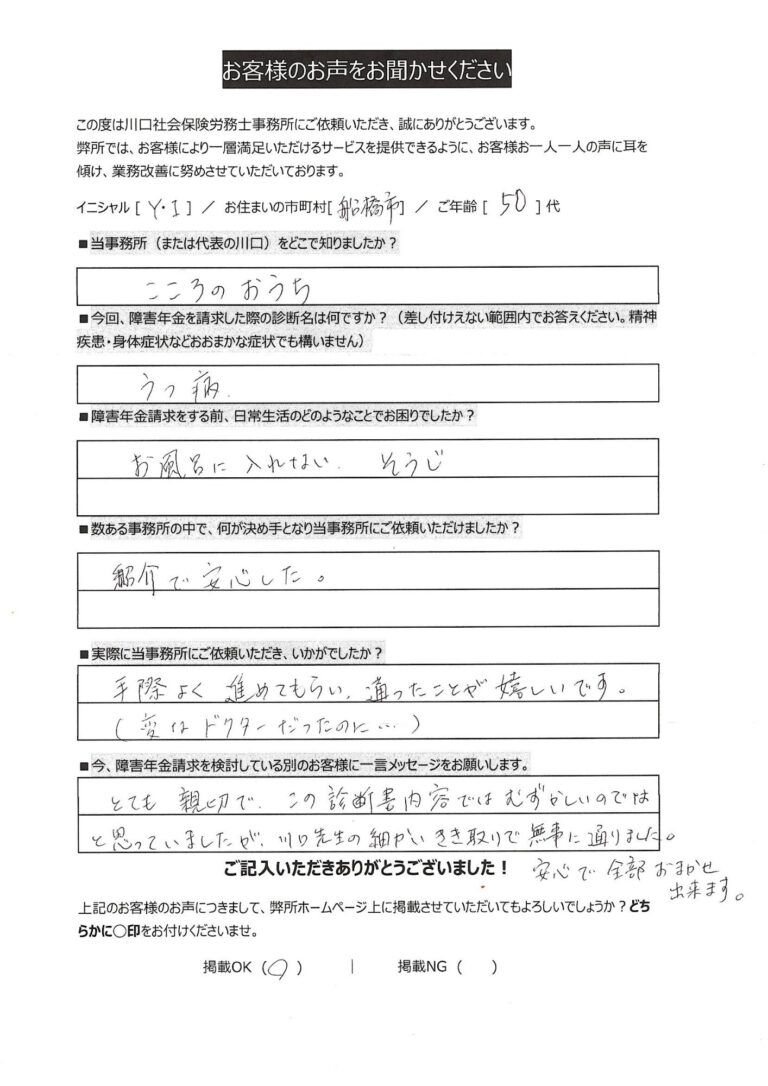 お客様のお声をお聞かせください
この度は川口社会保険労務士事務所にご依頼いただき、誠にありがとうございます。
弊所では、お客様により一層満足いただけるサービスを提供できるように、お客様お一人一人の声に耳を
傾け、業務改善に努めさせていただいております。
イニシャル [ Y・I ] / お住まいの市町村[ 船橋市 ] / ご年齢 [ 50 ] 代
■当事務所（または代表の川口）をどこで知りましたか？
こころのおうち
■今回、障害年金を請求した際の診断名は何ですか？（差し付けえない範囲内でお答えください。精神
疾患・身体症状などおおまかな症状でも構いません）
うつ病.
■障害年金請求をする前、日常生活のどのようなことでお困りでしたか？
お風呂に入れない. そうじ
■数ある事務所の中で、何が決め手となり当事務所にご依頼いただけましたか？
紹介で安心した。
■実際に当事務所にご依頼いただき、いかがでしたか？
手際よく進めてもらい、通ったことが嬉しいです。
(変なドクターだったのに…)
■今、障害年金請求を検討している別のお客様に一言メッセージをお願いします。
とても親切で、この診断書内容ではむずかしいのでは
と思っていましたが、川口先生の細かいきき取りで無事に通りました。
安心で全部おまかせ
出来ます。
ご記入いただきありがとうございました！
上記のお客様のお声につきまして、弊所ホームページ上に掲載させていただいてもよろしいでしょうか？どち
らかに〇印をお付けくださいませ。
掲載OK（○） | 掲載NG（ ）